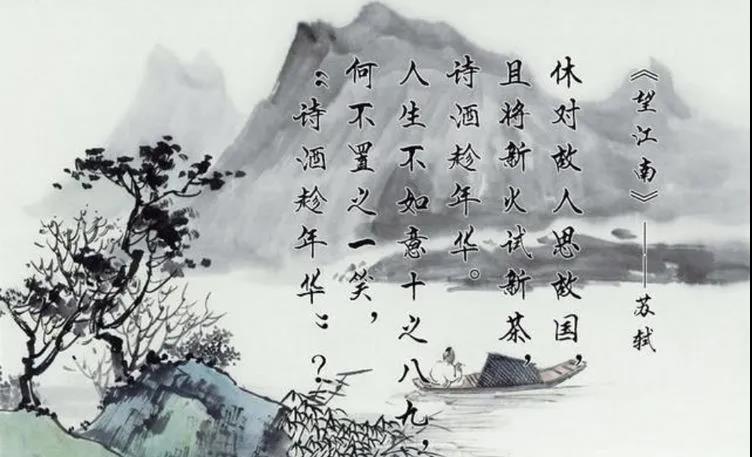 《望江南》——苏轼
休对故人思故国，
且将新火试新茶，
诗酒趁年华。
人生不如意十之八九，
何不置之一笑，
“诗酒趁年华”？